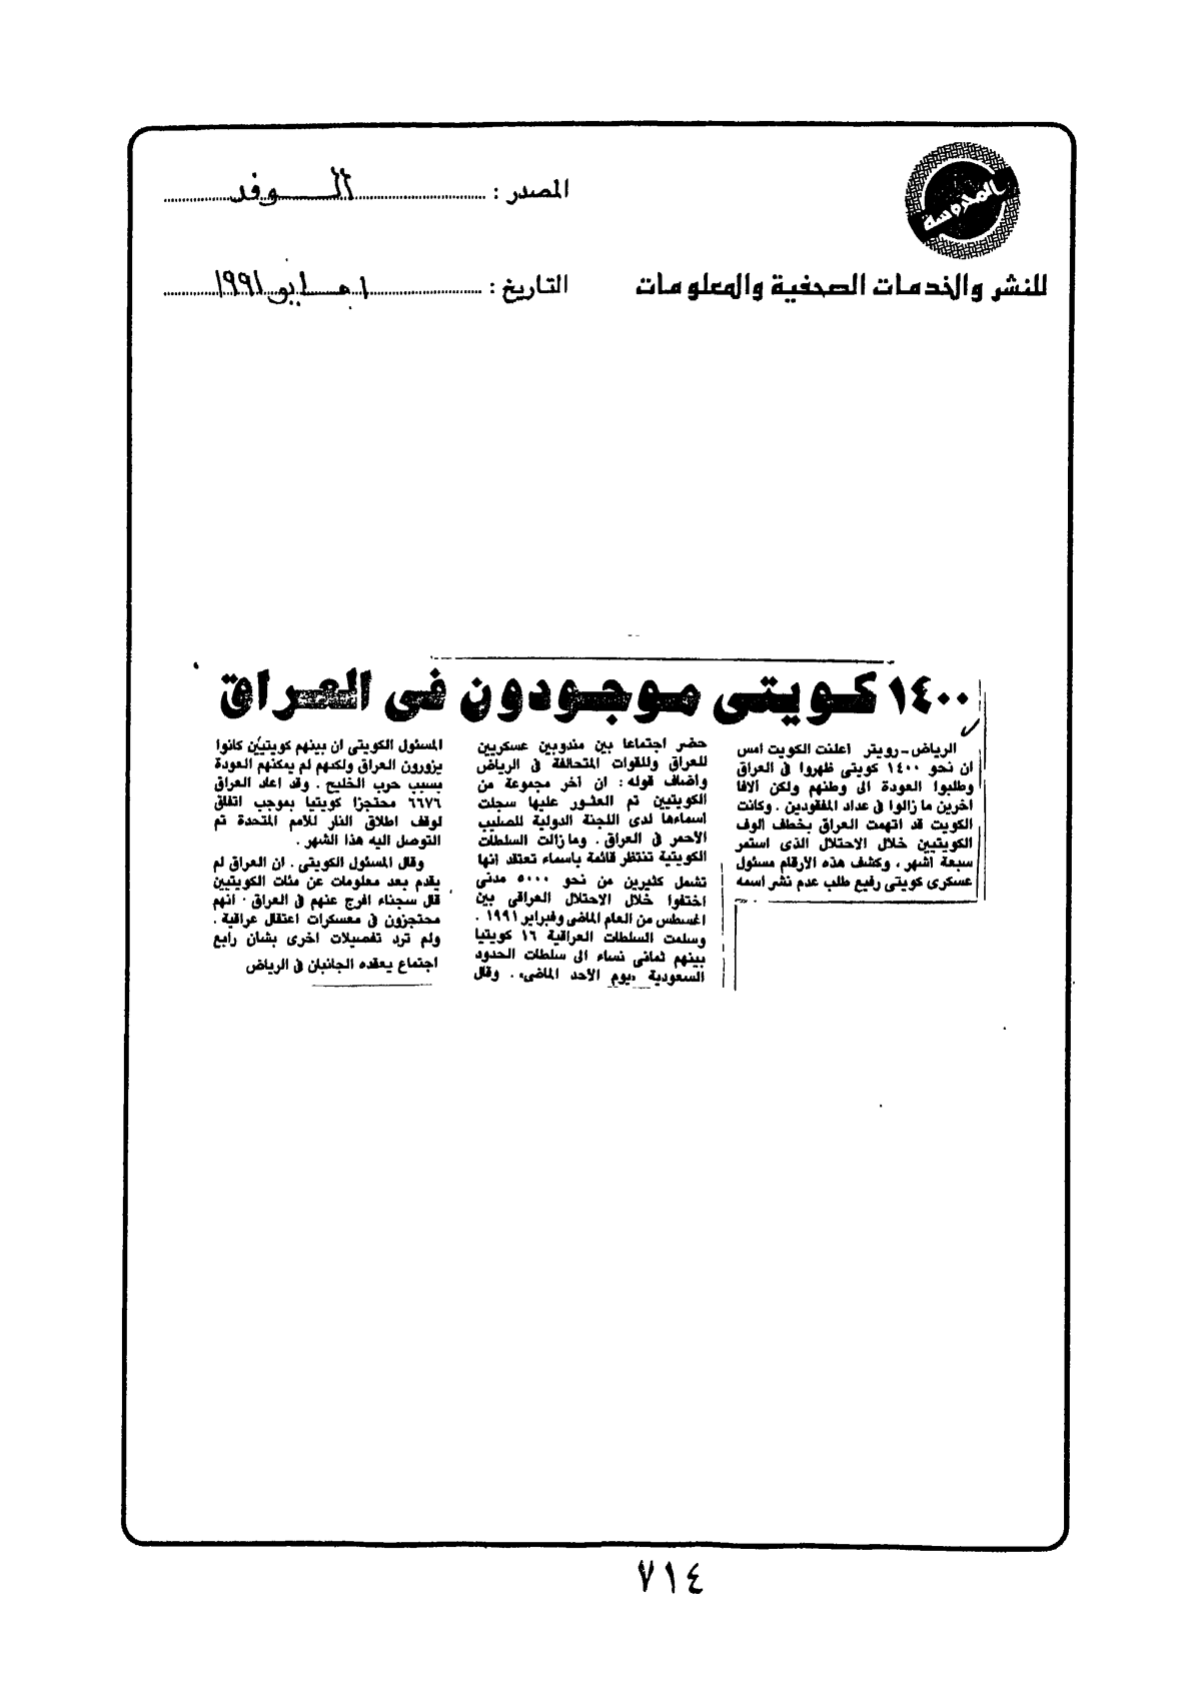 المحروسة
للنشر والخدمات الصحفية والمعلومات
المصدر : الوفد
التاريخ : ١ مايو ١٩٩١
١٤٠٠ كويتى موجودون فى العراق
الرياض - رويتر اعلنت الكويت امس
ان نحو ١٤٠٠ كويتى ظهروا فى العراق
وطلبوا العودة الى وطنهم ولكن الافا
اخرين ما زالوا فى عداد المفقودين . وكانت
الكويت قد اتهمت العراق بخطف الوف
الكويتيين خلال الاحتلال الذى استمر
سبعة اشهر ، وكشف هذه الارقام مسئول
عسكرى كويتى رفيع طلب عدم نشر اسمه
حضر اجتماعا بين مندوبين عسكريين
للعراق وللقوات المتحالفة فى الرياض
واضاف قوله : ان اخر مجموعة من
الكويتيين تم العثور عليها سجلت
اسماءها لدى اللجنة الدولية للصليب
الاحمر فى العراق . وما زالت السلطات
الكويتية تنتظر قائمة باسماء تعتقد انها
تشمل كثيرين من نحو ٥٠٠٠ مدنى
اختفوا خلال الاحتلال العراقى بين
اغسطس من العام الماضى وفبراير ١٩٩١ .
وسلمت السلطات العراقية ١٦ كويتيا
بينهم ثمانى نساء الى سلطات الحدود
السعودية «يوم الاحد الماضى» . وقال
المسئول الكويتى ان بينهم كويتيين كانوا
يزورون العراق ولكنهم لم يمكنهم العودة
بسبب حرب الخليج . وقد اعاد العراق
٦٦٧٦ محتجزا كويتيا بموجب اتفاق
لوقف اطلاق النار للامم المتحدة تم
التوصل اليه هذا الشهر .
وقال المسئول الكويتى . ان العراق لم
يقدم بعد معلومات عن مئات الكويتيين
قال سجناء افرج عنهم فى العراق . انهم
محتجزون فى معسكرات اعتقال عراقية .
ولم ترد تفصيلات اخرى بشان رابع
اجتماع يعقده الجانبان فى الرياض
٧١٤